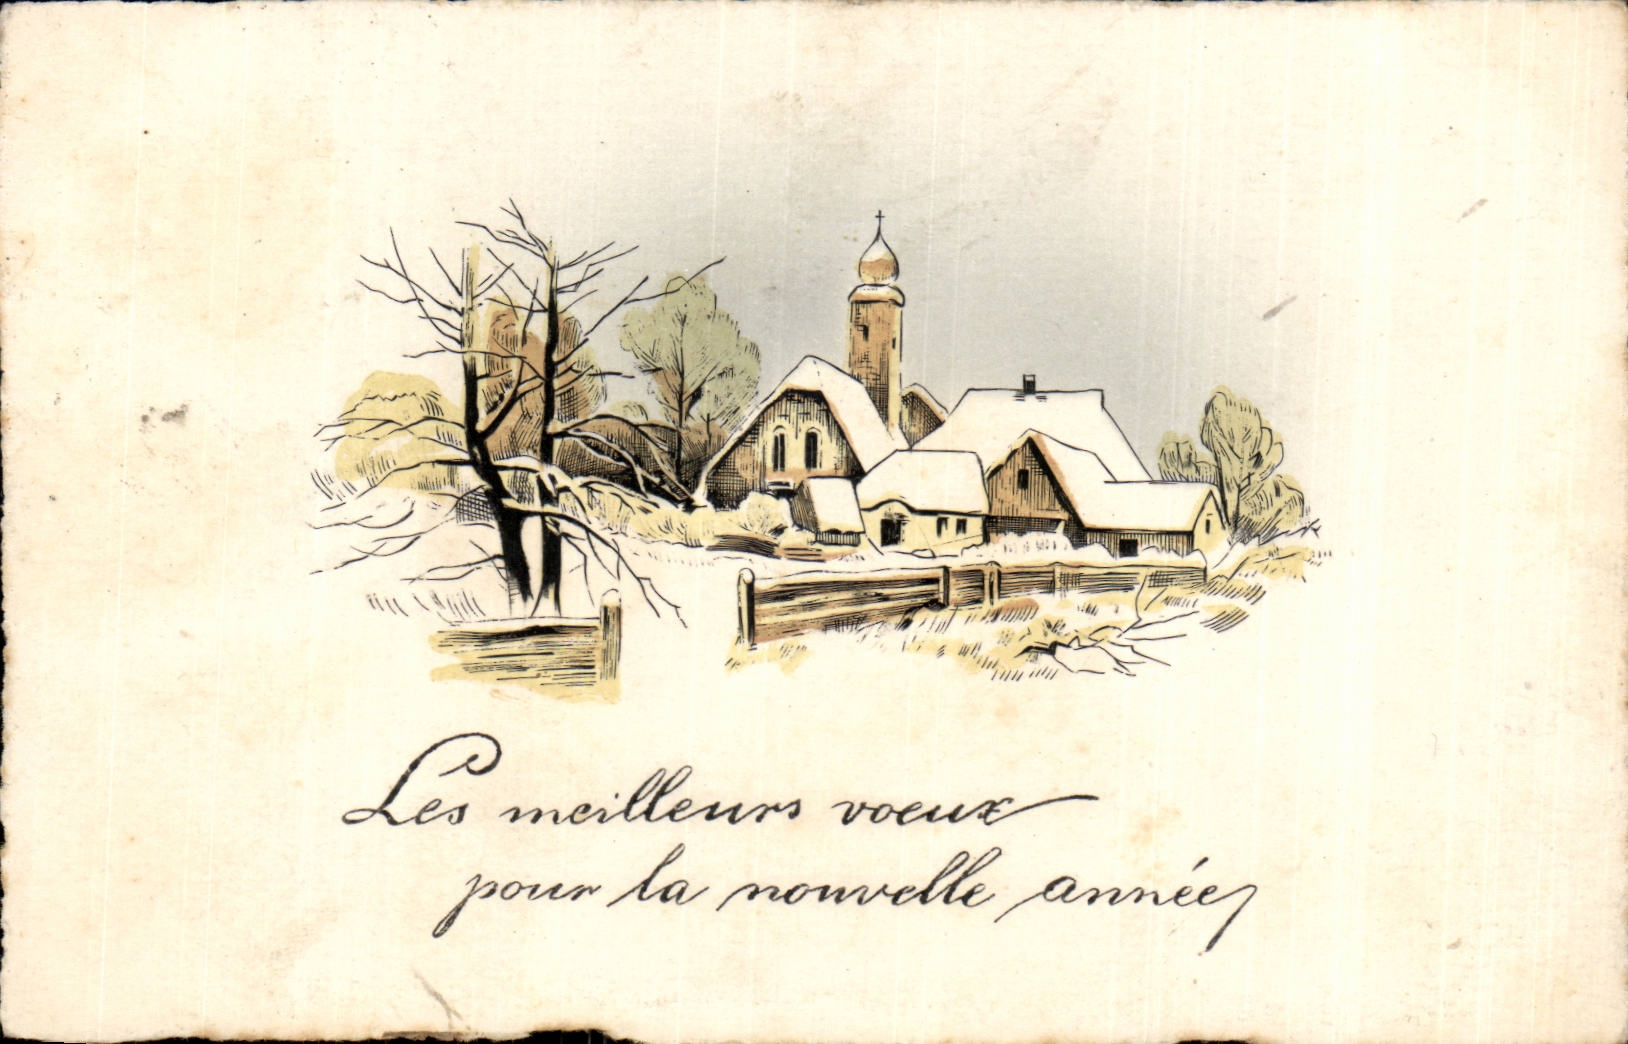 Les meilleurs voeux
pour la nouvelle année